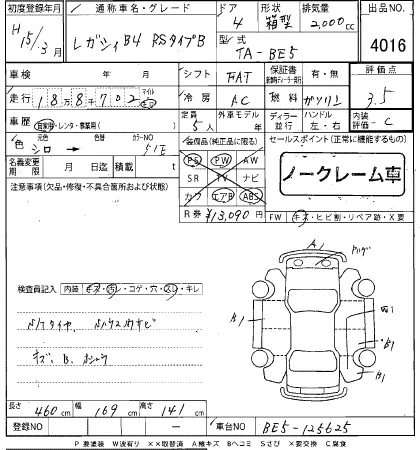 初度登録年月 通称車名・グレード ドア 形状 排気量 出品NO
H15/3月 レガシィ B4 RSタイプB 4 箱型 2,000cc 4016
型式 TA-BE5
車検 年 月 シフト FAT 保証書 有・無 評価点
走行 188702 マイル Km 冷房 AC 燃料 ガソリン 3.5
車歴 自家用・レンタ・事業用( ) 定員 5人 外車モデル 年 ディーラー 並行 ハンドル 左・右 内装評価 C
色 元色 シロ → 色替 カラーNO 51E 装備品(純正品に限る) セールスポイント(正常に機能するもの)
名義変更期限 月 日迄 積載 t PS PW AW
SR TV ナビ
カワ エアB ABS ノークレーム車
注意事項(欠品・修復・不具合箇所および状態) R券 ¥13,090円 FW キズ・ヒビ割・リペア跡・X要
A1
検査員記入 内装 キズ・汚レ・コゲ・穴・スレ・キレ
B1
B1
B1
キズ、B、
長さ 460cm 幅 169cm 高さ 141cm
登録NO 車台NO BE5-125625
P要塗装 W波有り ××取替済 A線キズ Bヘコミ Sさび ×要交換 C腐食